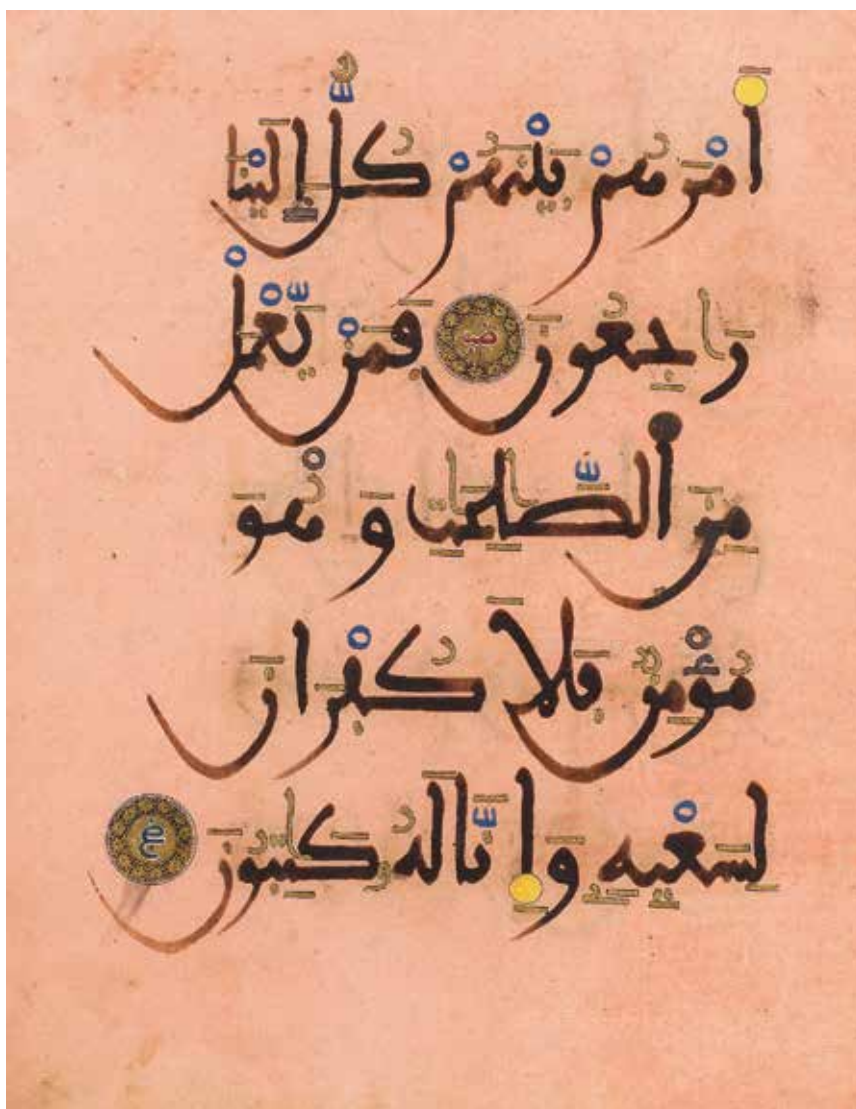 أَمْرَهُمْ بَيْنَهُمْ كُلٌّ إِلَيْنَا
رَٰجِعُونَ فَمَنْ يَّعْمَلْ
مِنَ ٱلصَّٰلِحَٰتِ وَهُوَ
مُؤْمِنٌ فَلَا كُفْرَانَ
لِسَعْيِهِۦ وَإِنَّا لَهُۥ كَٰتِبُونَ